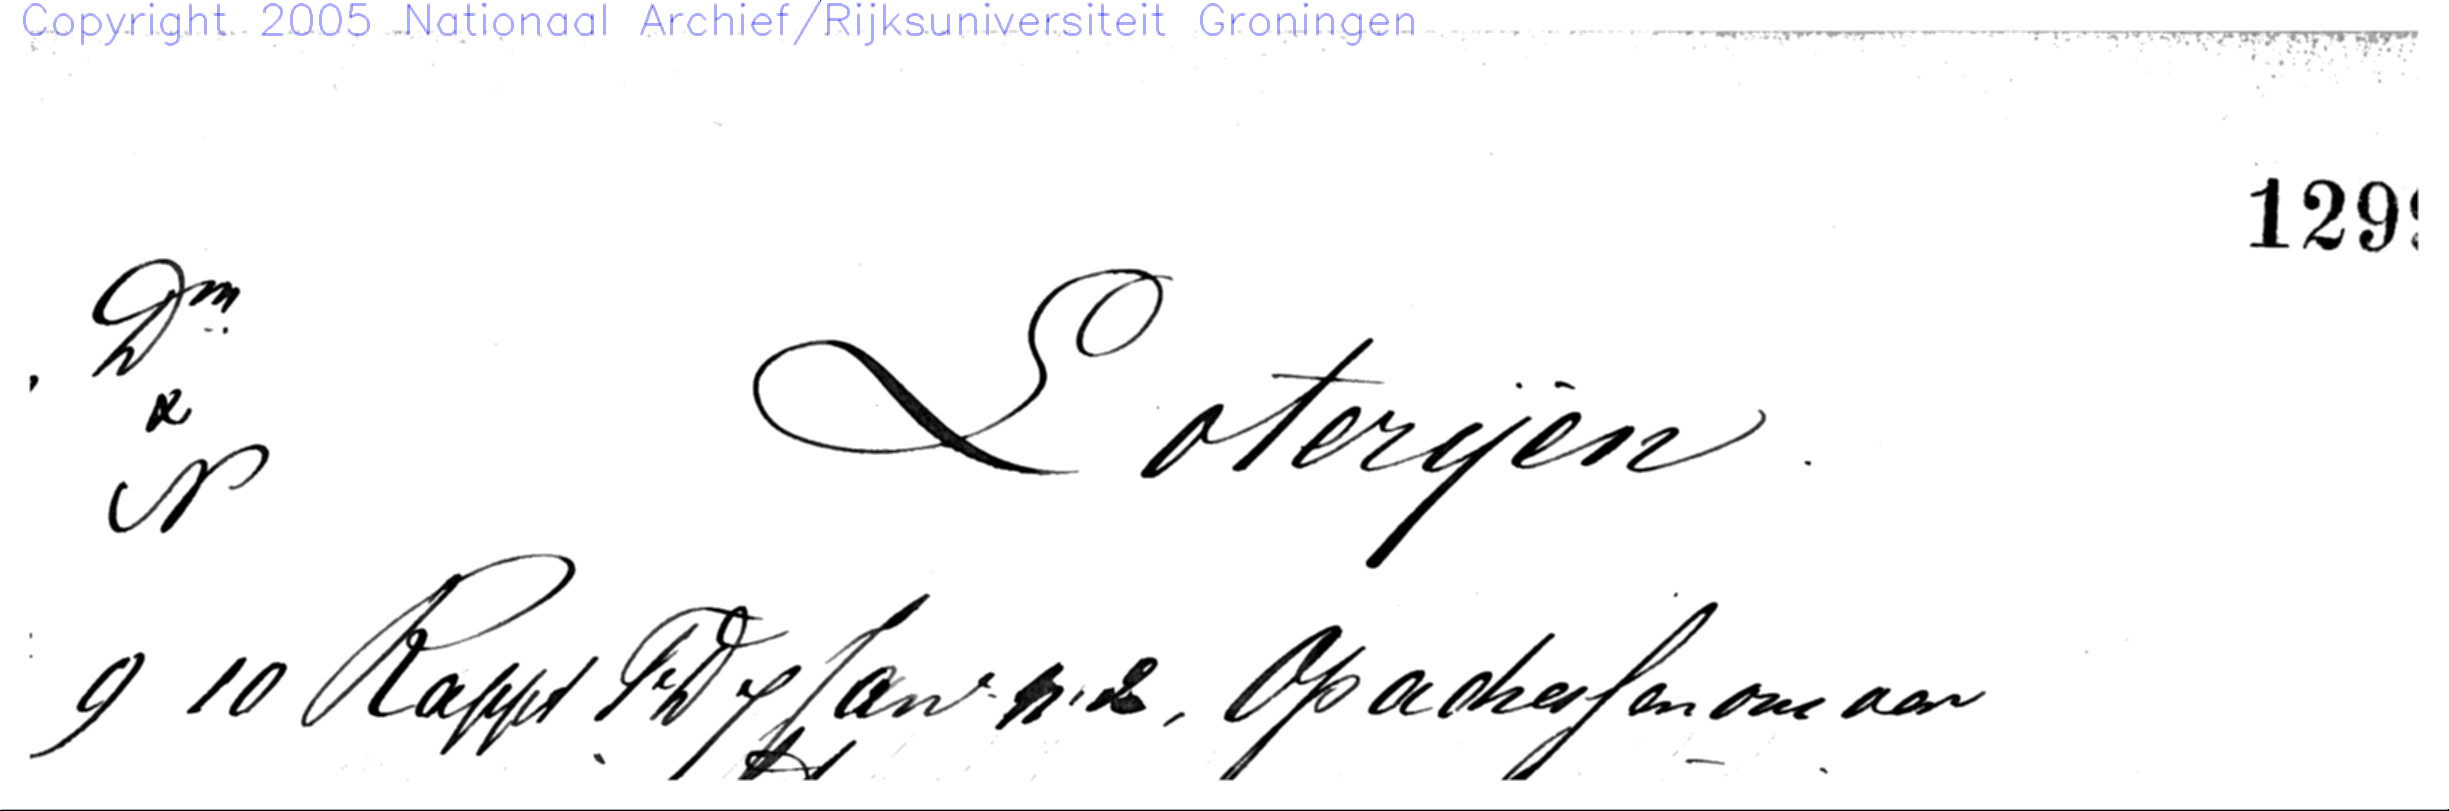 Copyright 2005 Nationaal Archief/Rijksuniversiteit Groningen
129
Dm
&
N
Loterijen.
9 10 Rappt FD 7 Jan 2, Op adressen om aan